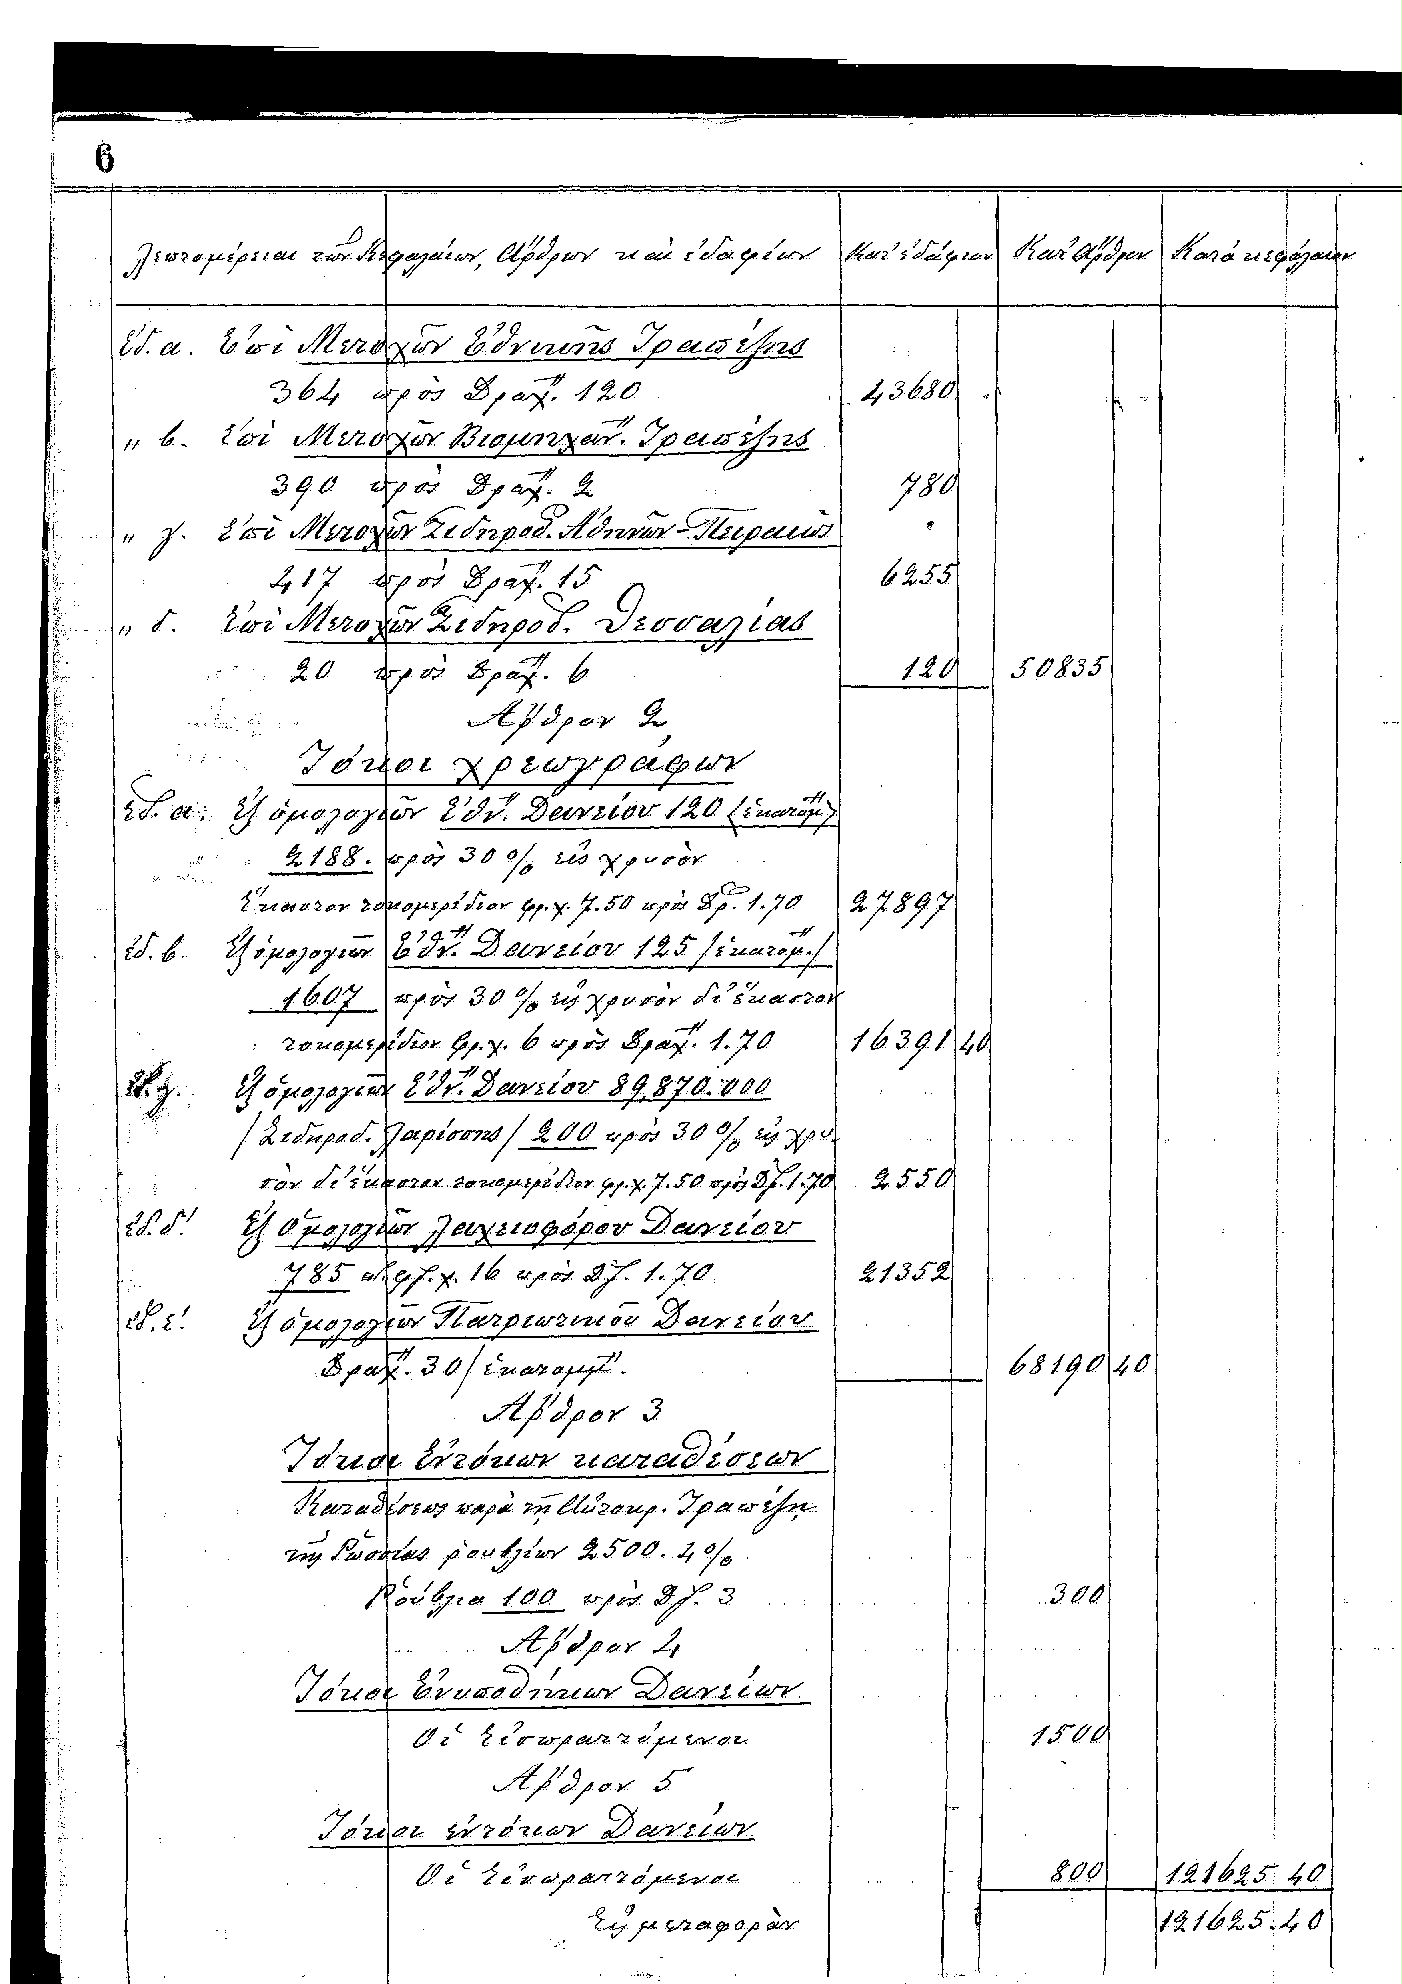 6
Λεπτομέρειαι τῶν Κεφαλαίων, Ἄρθρων καὶ ἐδαφίων Κατ' ἐδάφιον Κατ' Ἄρθρον Κατὰ κεφάλαιον
Ἐδ. α. Ἐπὶ Μετοχῶν Ἐθνικῆς Τραπέζης
364 πρὸς Δραχ. 120 43680
" β. Ἐπὶ Μετοχῶν Βιομηχαν. Τραπέζης
390 πρὸς Δραχ. 2 780
" γ. Ἐπὶ Μετοχῶν Σιδηροδ. Ἀθηνῶν-Πειραιῶς
417 πρὸς Δραχ. 15 6255
" δ. Ἐπὶ Μετοχῶν Σιδηροδ. Θεσσαλίας
20 πρὸς Δραχ. 6 120 50835
Ἄρθρον 2
Τόκοι χρεωγράφων
Ἐδ. α. Ἐξ ὁμολογιῶν Ἐθν. Δανείου 120 (ἑκατομ)
2188. πρὸς 30 % εἰς χρυσὸν
ἕκαστον τοκομερίδιον φρ. χ. 7.50 πρὸς Δρ. 1.70 27897
Ἐδ. β. Ἐξ ὁμολογιῶν Ἐθν. Δανείου 125 /ἑκατομ./
1607 πρὸς 30 % εἰς χρυσὸν δι' ἕκαστον
τοκομερίδιον φρ. χ. 6 πρὸς Δραχ. 1.70 16391 40
Ἐδ. γ. Ἐξ ὁμολογιῶν Ἐθν. Δανείου 89,870.000
/Σιδηροδ. Λαρίσσης/ 200 πρὸς 30 % εἰς χρυ-
σὸν δι' ἕκαστον τοκομερίδιον φρ. χ. 7.50 πρὸς Δρ. 1.70 2550
Ἐδ. δ' Ἐξ Ὁμολογιῶν Λαχειοφόρου Δανείου
785 φρ. χ. 16 πρὸς Δρ. 1.70 21352
Ἐδ. ε' Ἐξ ὁμολογιῶν Πατριωτικοῦ Δανείου
Δραχ. 30/ἑκατομμ. 68190 40
Ἄρθρον 3
Τόκοι Ἐντόκων καταθέσεων
Καταθέσεως παρὰ τῇ Αὐτοκρ. Τραπέζῃ
τῆς Ῥωσσίας ῥουβλίων 2500. 4 %
Ῥούβλια 100 πρὸς Δρ. 3 300
Ἄρθρον 4
Τόκοι Ἐνυποθήκων Δανείων
Οἱ Εἰσπραττόμενοι 1500
Ἄρθρον 5
Τόκοι ἐντόκων Δανείων
Οἱ Εἰσπραττόμενοι 800 121625 40
Εἰς μεταφορὰν 121625.40